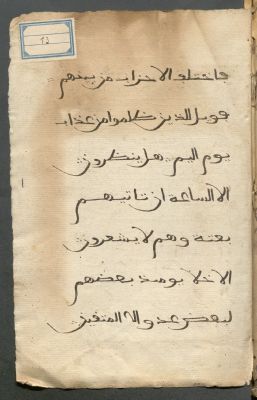 ١٢
فاختلف الاحزاب من بينهم
فويل للذين ظلموا من عذاب
يوم اليم هل ينظرون
الا الساعة ان تاتيهم
بغتة وهم لا يشعرون
الاخلا يوميذ بعضهم
لبعض عدو الا المتقين